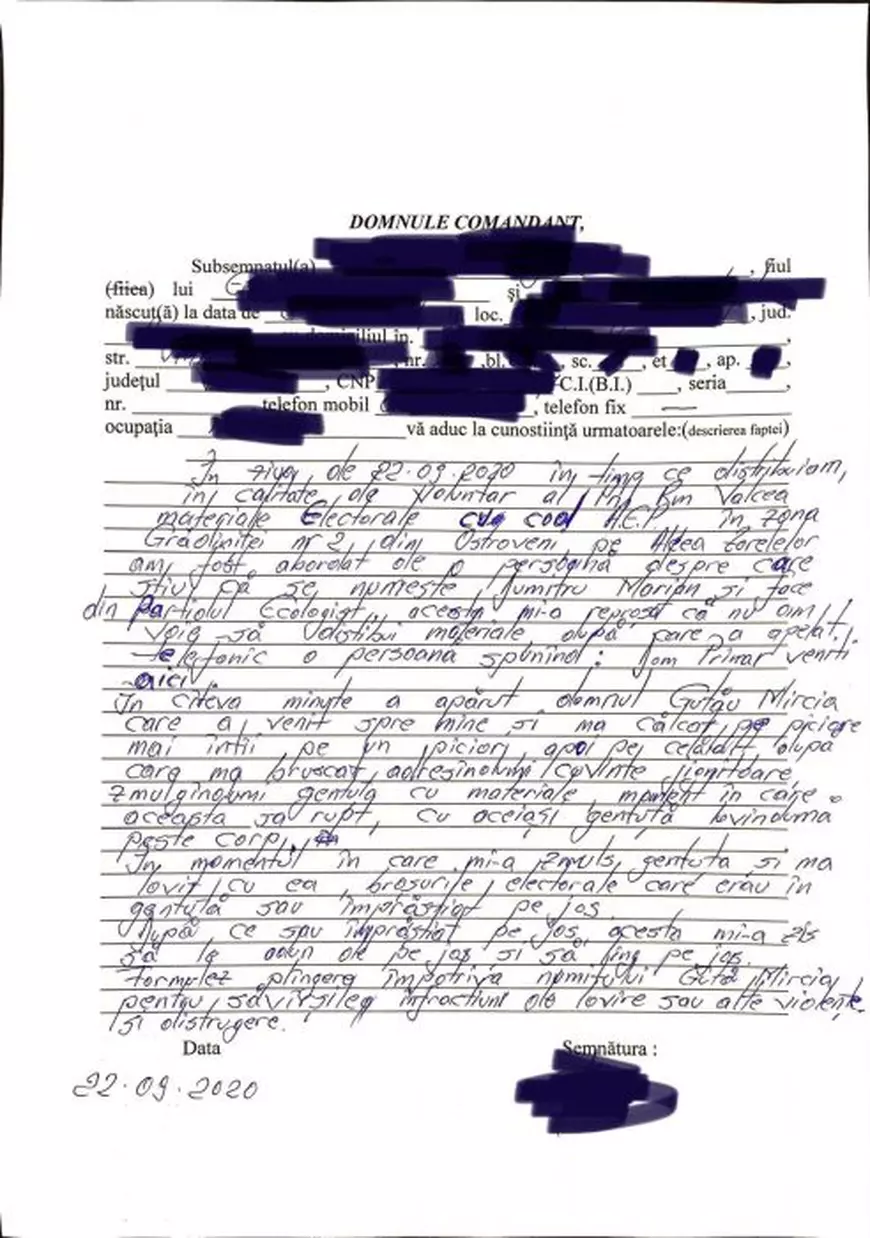 DOMNULE COMANDANT,
Subsemnatul(a) , fiul
(fiica) lui și
născut(ă) la data de loc. , jud.
cu domiciliul in. ,
str. , nr. ,bl. , sc. , et , ap. ,
județul , CNP C.I.(B.I.) , seria ,
nr. telefon mobil , telefon fix —
ocupația vă aduc la cunostiință urmatoarele:(descrierea faptei)
În ziua de 22.09.2020 în timp ce distribuiam,
în calitate de voluntar al PNL Rm Valcea
materiale Electorale cu cod A.E.P. în zona
Grădiniței nr 2, din Ostroveni, pe Aleea Zorelelor
am fost abordat de o persoana despre care
știu că se numește Dumitru Marian și face
din Partidul Ecologist, acesta mi-a reproșat că nu am
voie să distibui materiale după care a apelat
telefonic o persoană spunînd: Dom Primar veniti
aici!
În cîteva minute a apărut domnul Gutău Mircia
care a venit spre mine si ma călcat pe picioare
mai întîi pe un picior, apoi pe celălalt dupa
care ma bruscat, adresîndumi cuvinte jignitoare,
zmulgîndumi gentuța cu materiale, moment în care
aceasta sa rupt, cu aceiași gentuță lovinduma
peste corp.
În momentul în care mi-a zmuls gentuta si ma
lovit cu ea, broșurile electorale care erau în
gentuță sau împrăștiat pe jos.
După ce sau împrăștiat pe jos, acesta mi-a zis
să le adun de pe jos si să ling pe jos.
Formulez plîngere împotriva numitului Gută Mircia,
pentru săvîrșirea infracțiuni de lovire sau alte violențe
si distrugere.
Data Semnătura :
22.09.2020